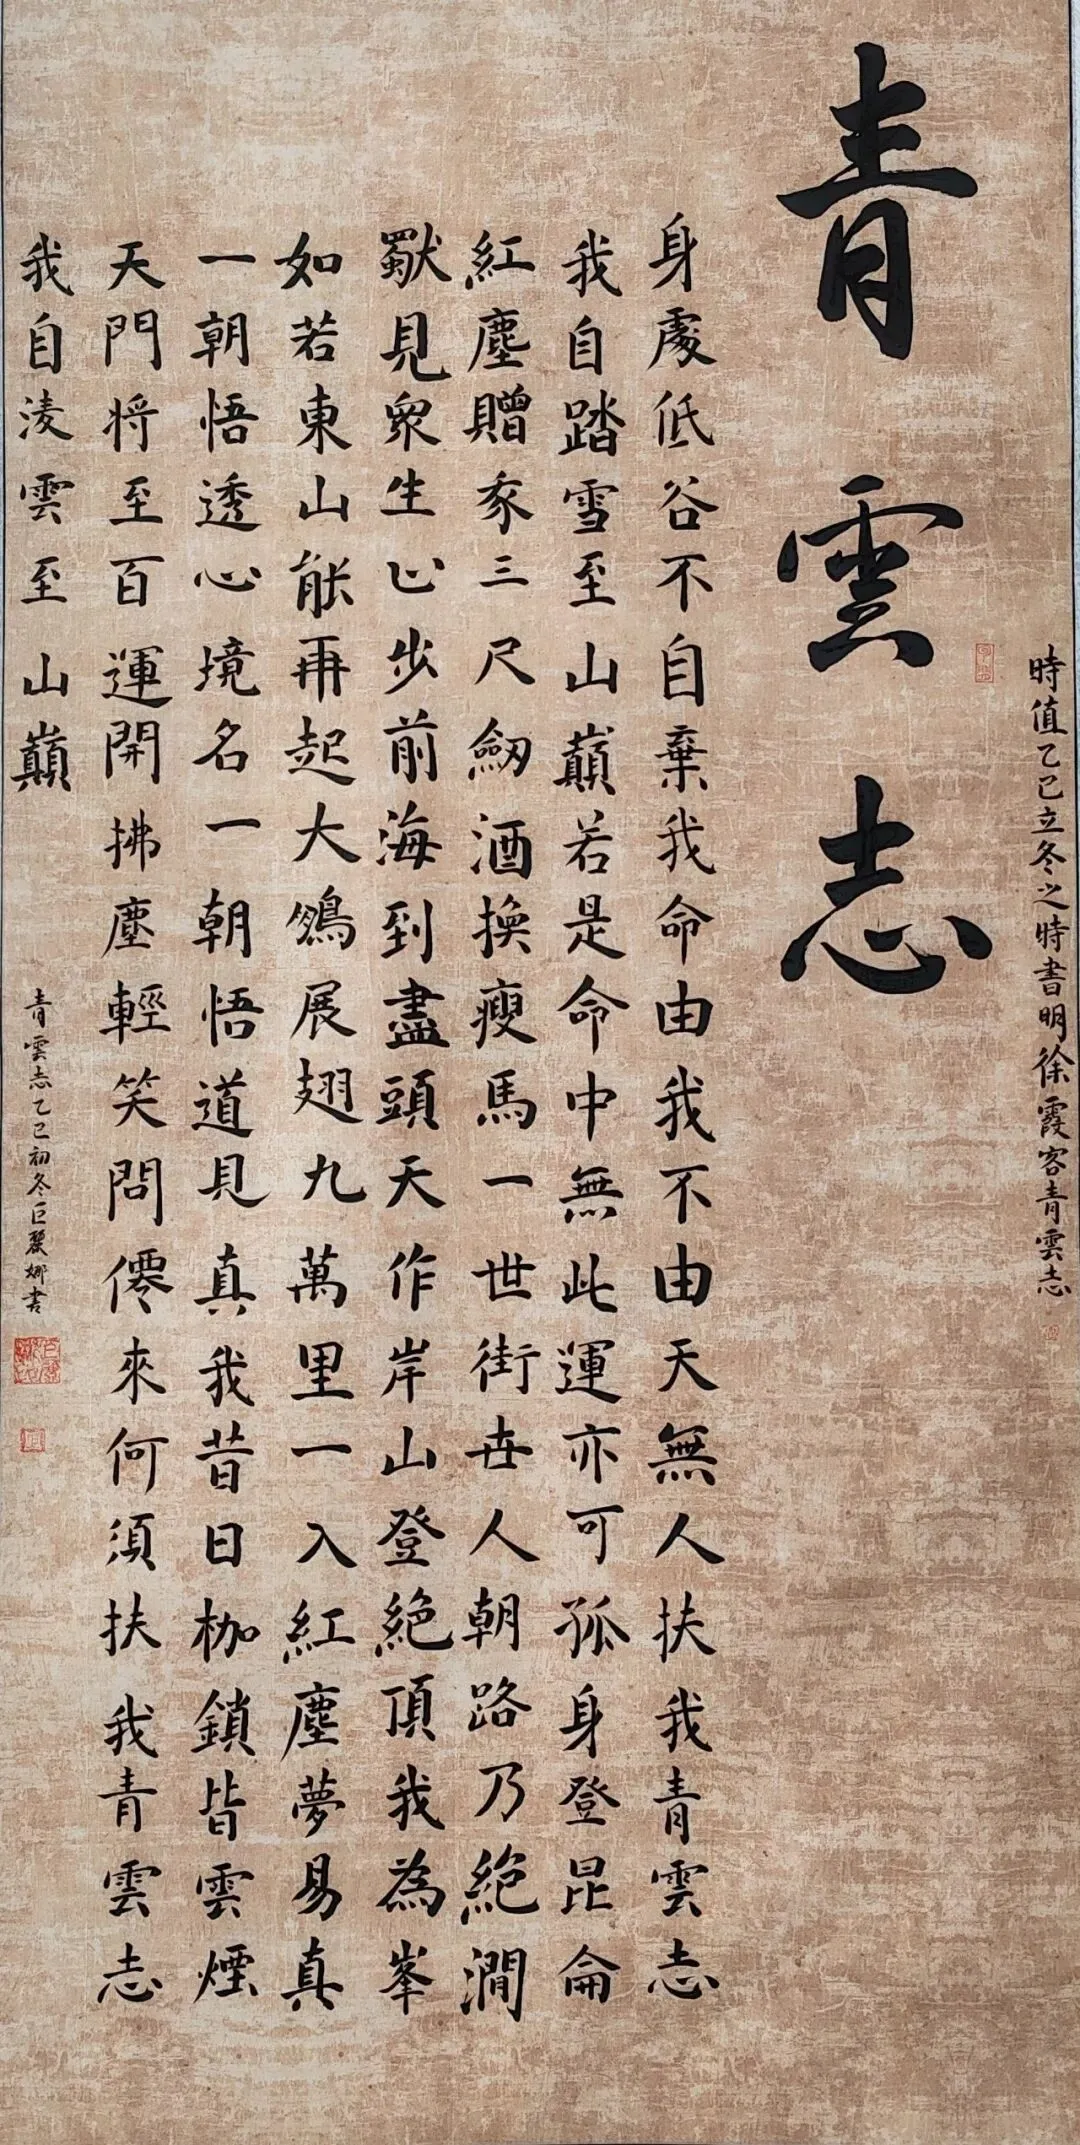 時值乙巳立冬之時書明徐霞客青雲志
青雲志
身處低谷不自棄我命由我不由天無人扶我青雲志
我自踏雪至山巔若是命中無此運亦可孤身登昆侖
紅塵贈三尺劒酒換瘦馬一世街世人朝路乃絕澗
獨見眾生止步前海到盡頭天作岸山登絕頂我為峯
如若東山能再起大鵬展翅九萬里一入紅塵夢易真
一朝悟透心境名一朝悟道見真我昔日枷鎖皆雲煙
天門将至百運開拂塵輕笑問僊來何須扶我青雲志
我自淩雲至山巔
青雲志乙巳初冬巨麗娜書